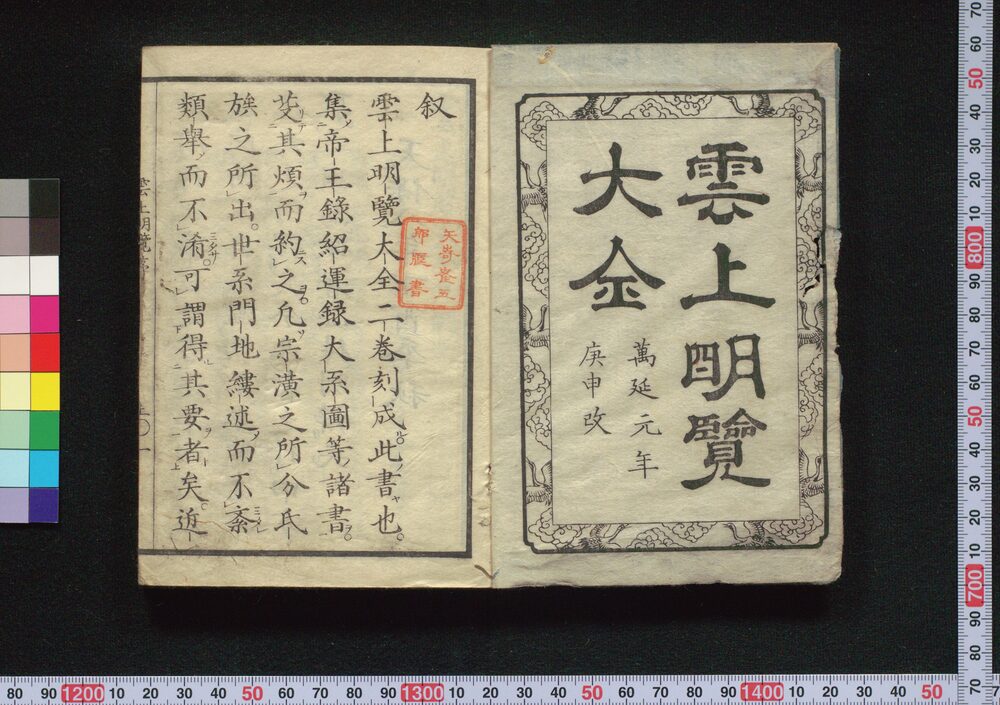 雲上明覽
大全
萬延元年
庚申改
叙
雲上明覽大全二巻刻成此書也。
集帝王錄紹運録大系圖等諸書。
芟其煩而約之凡宗潢之所分氏
族之所出。世系門地縷述而不紊
類舉而不淆。可謂得其要者矣。近
70 60 50 40 30 20 10 800 90 80 70 60 50 40 30 20 10 700 90 80 70
80 90 1200 10 20 30 40 50 60 70 80 90 1300 10 20 30 40 50 60 70 80 90 1400 10 20 30 40 50